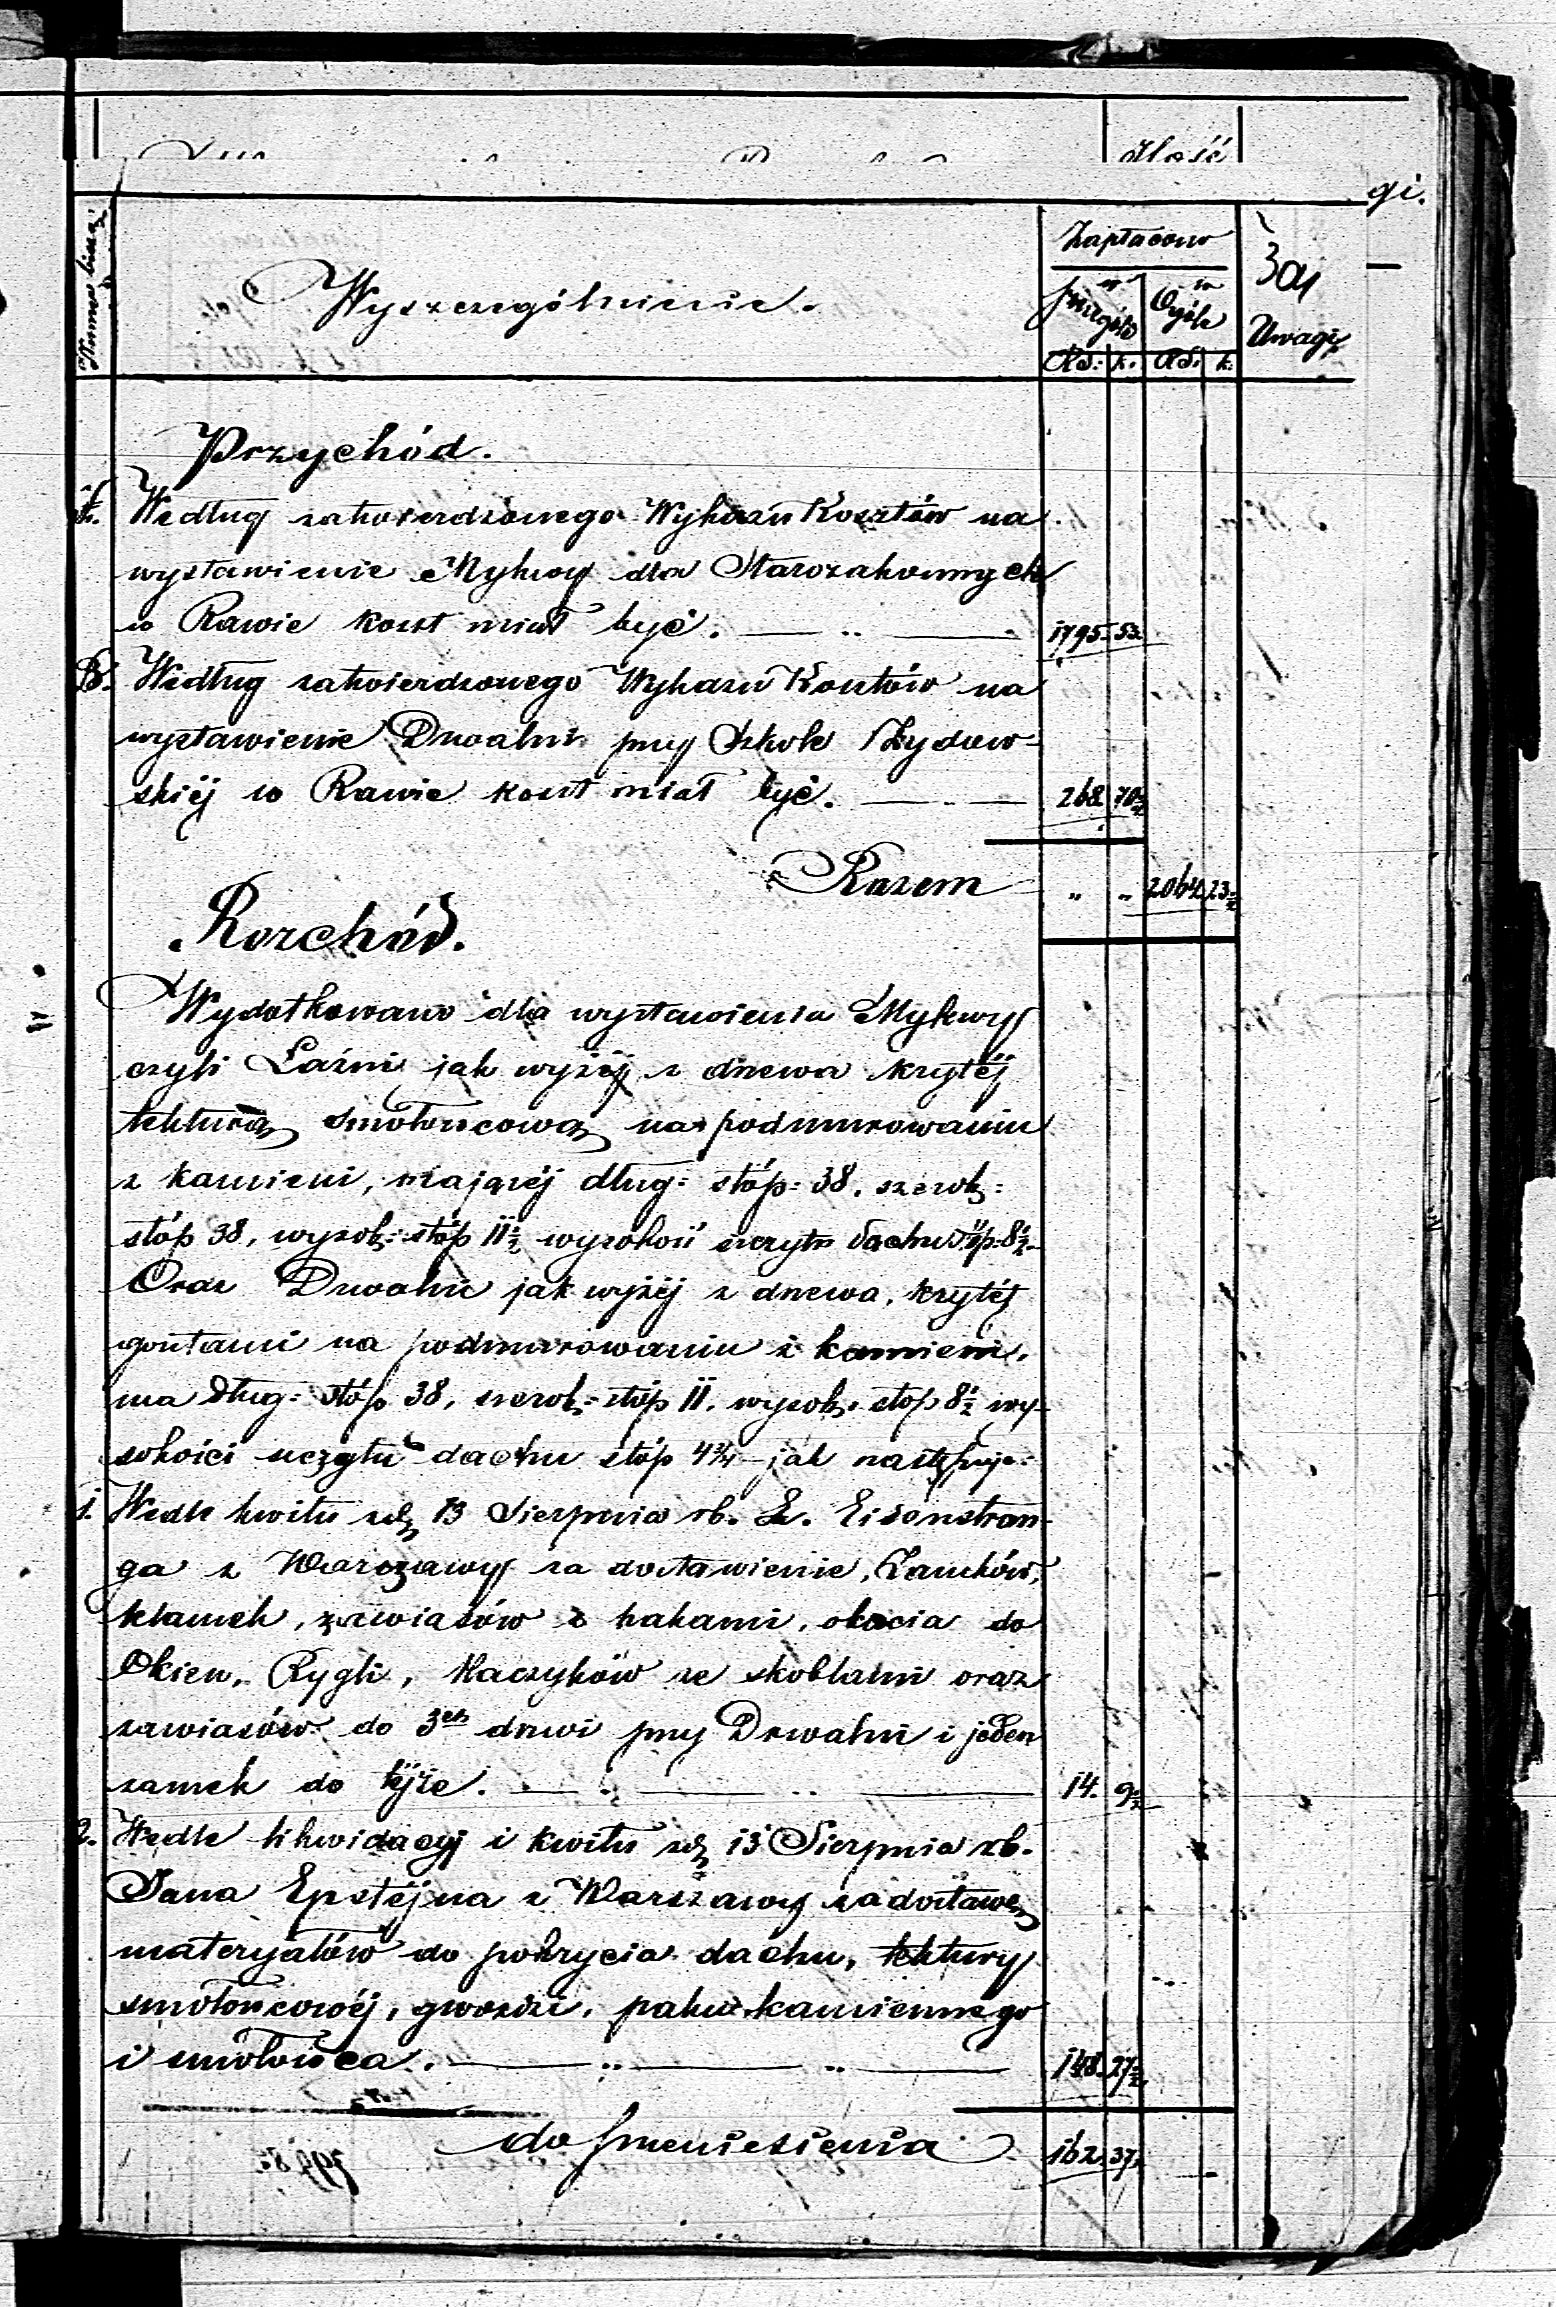 Ilość
gi.
Numer bieżą:
Wyszczególnienie.
Zapłacono
w szczególe
w Ogóle
Rs. k. Rs. k.
Uwagi
Przychód.
A. Według zatwierdzonego Wykazu Kosztów na
wystawienie Mykwy dla Starozakonnych
w Rawie koszt miał być. — „ — 1795 53.
B. Według zatwierdzonego Wykazu Kosztów na
wystawienie Drwalni przy Szkole Żydow-
skiéj w Rawie koszt miał być. — „ — 268 70½
Razem „ „ 2064 23½
Rozchód.
Wydatkowano dla wystawienia Mykwy
czyli Łaźni jak wyżéj z drzewa krytéj
tekturą smołowcową na podmurowaniu
z kamieni, mającéj dług: stóp: 38. szerok:
stóp 38, wysok: stóp 11½ wysokość szczytu dachu stóp: 8½
Oraz Drwalni jak wyżéj z drzewa, krytéj
gontami na podmurowaniu z kamieni,
ma dług: stóp 38, szerok: stóp 11. wysok: stóp 8½ wy-
sokości szczytu dachu stóp 4¾ – jak następuje:
1. Wedle kwitu zdn 13 Sierpnia rb. L. Eisenstran-
ga z Warszawy za dostawienie, Zamków,
klamek, zawiasów z hakami, okucia do
Okien, Rygli, Haczyków ze skoblami oraz
zawiasów do 3ch drzwi przy Drwalni i jeden
zamek do téjże. — „ — „ — 14. 9½
2. Wedle likwidacyj i kwitu zdn 13 Sierpnia rb.
Jana Epstéjna z Warszawy za dostawę
materyałów do pokrycia dachu, tektury
smołowcowéj, gwoździ, paku kamiennego
i smołowca. — „ — „ — 148. 27½
do przeniesienia 162. 37.